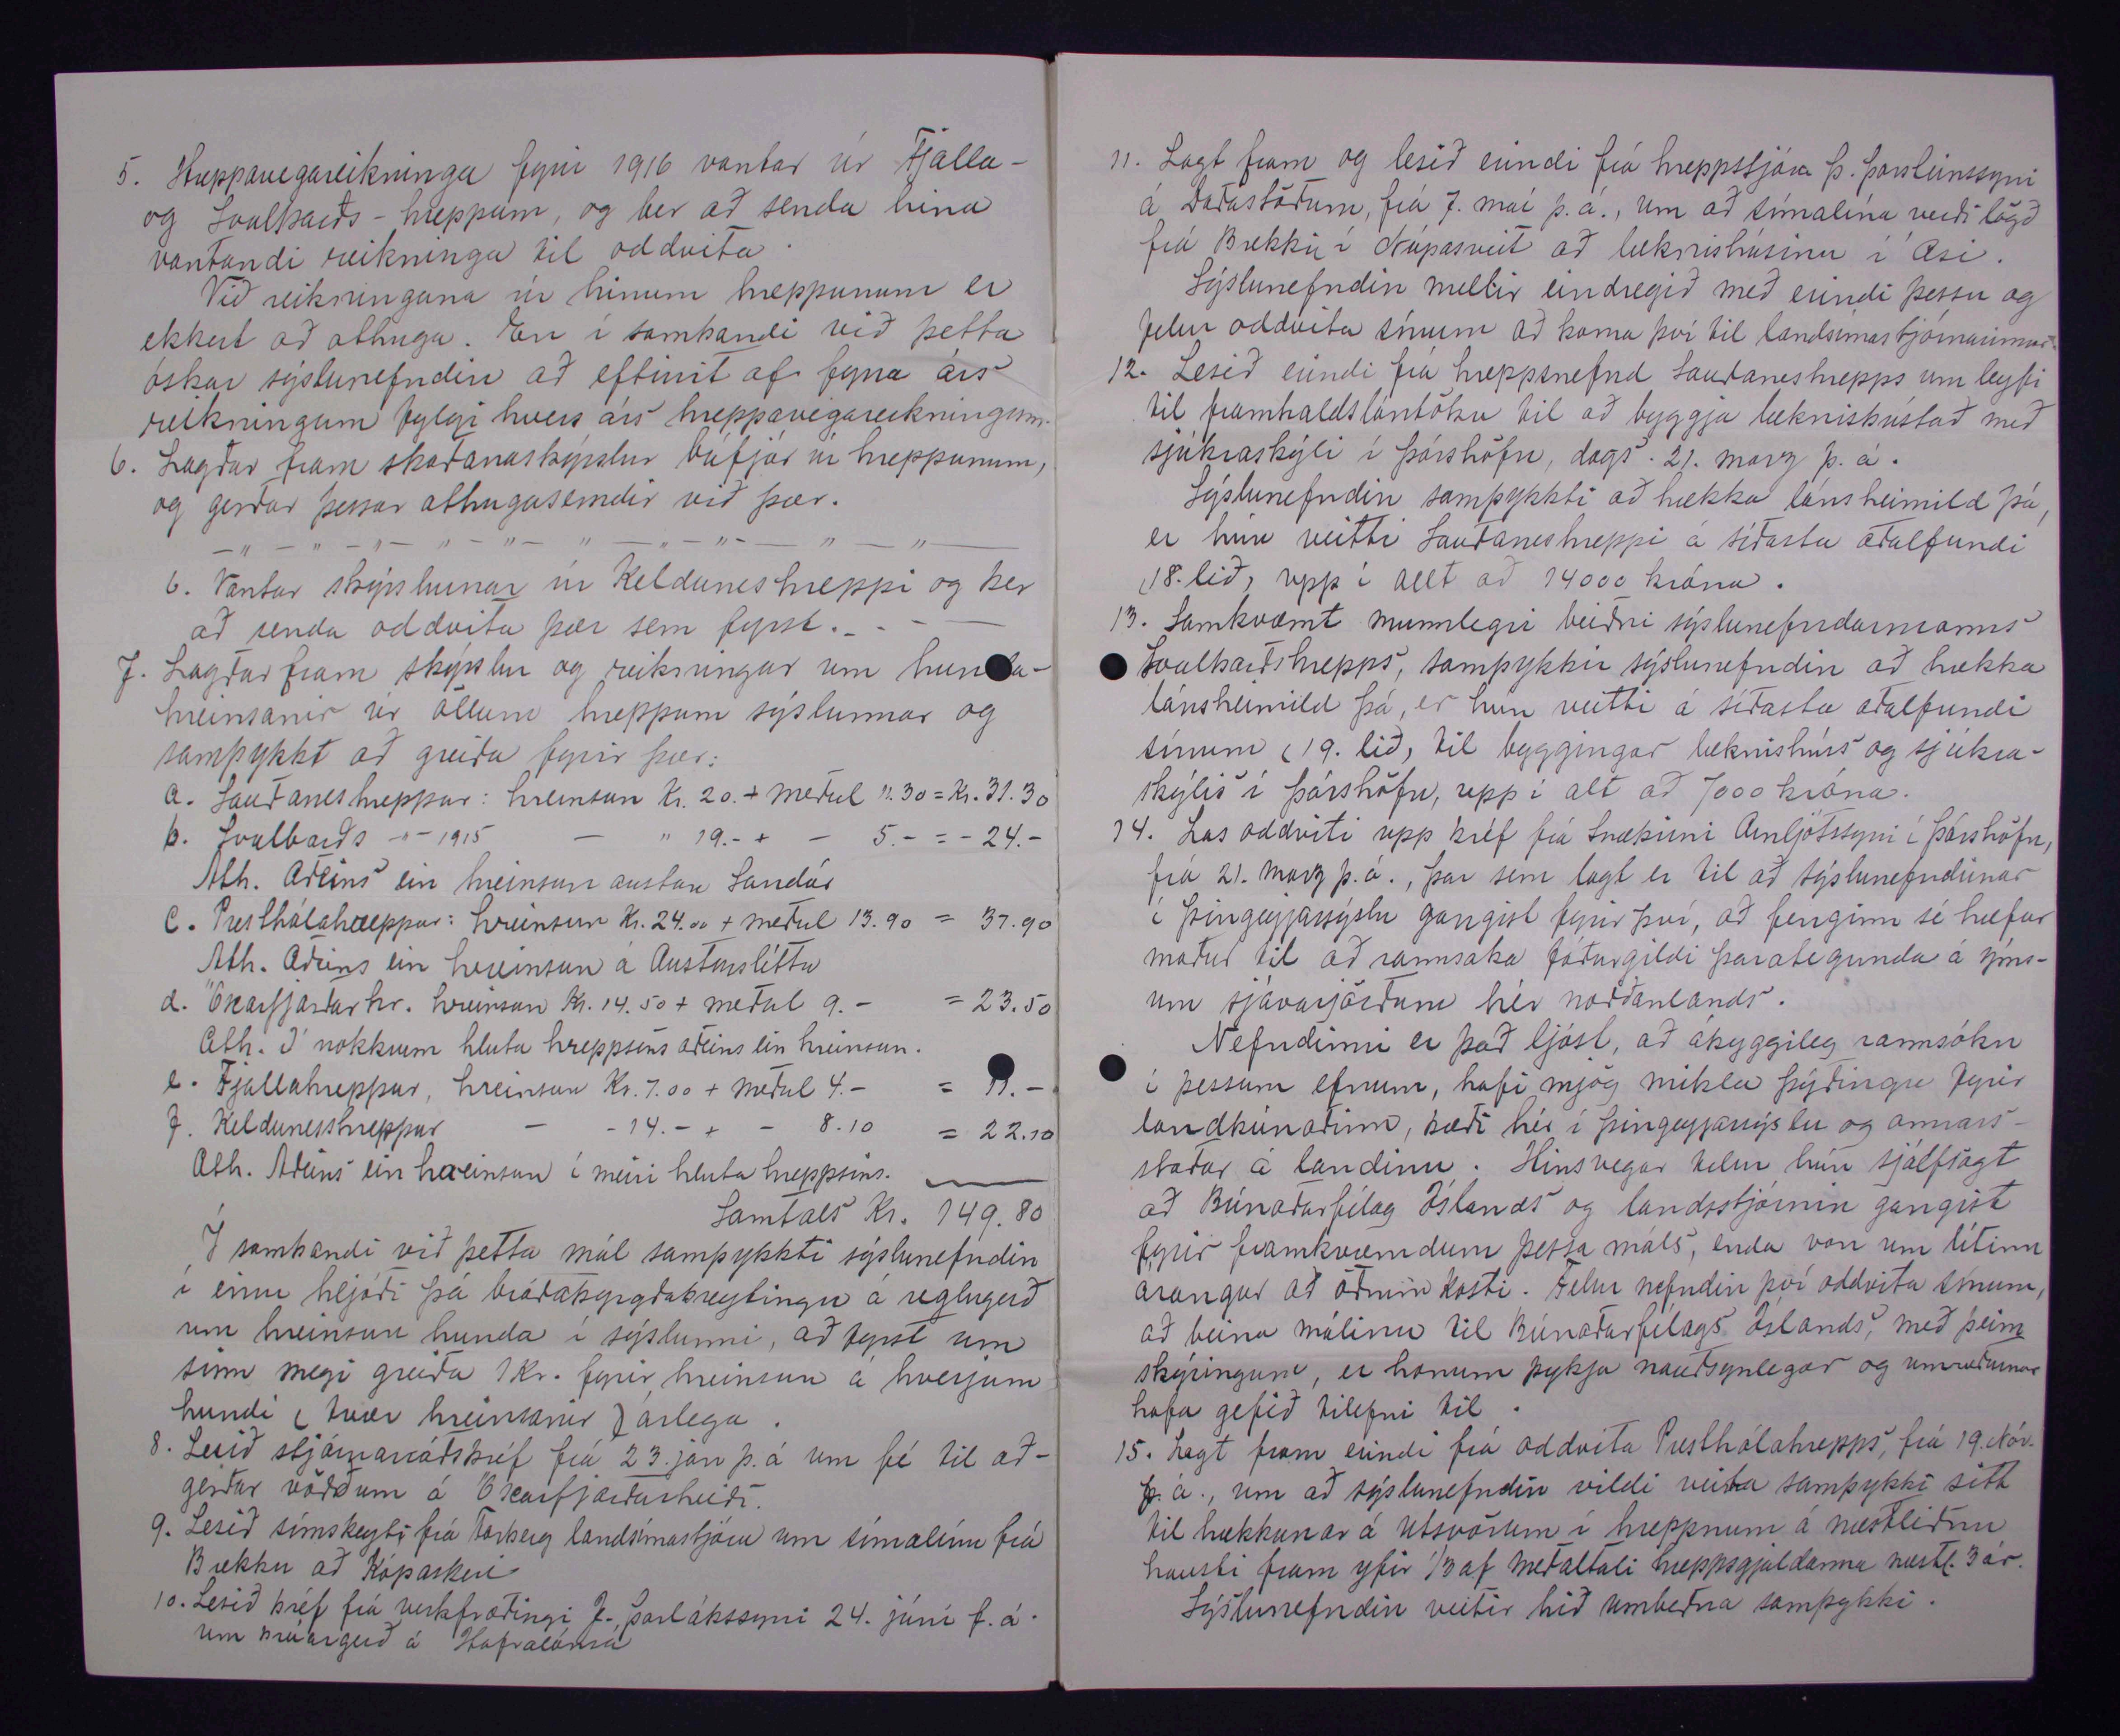 5. Hreppavegareikninga fyrir 1916 vantar úr Fjalla-
og Svalbarðs-hreppum, og ber að senda hina
vantandi reikninga til oddvita.
Við reikningana úr hinum hreppunum er
ekkert að athuga. En í sambandi við þetta
óskar sýslunefndin að eftirrit af fyrra árs
reikningum fylgi hvers árs hreppavegareikningum.
6. Lagðar fram skoðanaskýrslur búfjár úr hreppunum,
og gerðar þessar athugasemdir við þær.
— " — " — " — " — " — " — " — " — " — " —
6. Vantar skýrslurnar úr Kelduneshreppi og ber
að senda oddvita þær sem fyrst. - - - —
7. Lagðar fram skýrslur og reikningar um hunda-
hreinsanir úr öllum hreppum sýslunnar og
samþykkt að greiða fyrir þær:
a. Sauðaneshreppur: hreinsun Kr. 20.+ meðul 11.30 = Kr. 31.30
b. Svalbarðs -"- 1915 — " 19.- + - 5.- = - 24.-
Ath. Aðeins ein hreinsun austan Sandár
c. Presthólahreppur: hreinsun Kr. 24.00 + meðul 13.90 = 37.90
Ath. Aðeins ein hreinsun á Austursléttu
d. Öxarfjarðarhr. hreinsun Kr. 14.50 + meðal 9.- = 23.50
Ath. Í nokkrum hluta hreppsins aðeins ein hreinsun.
e. Fjallahreppur, hreinsun Kr. 7.00 + meðul 4.- = 11.-
f. Keldunesshreppur — - 14.- + - 8.10 = 22.10
Ath. Aðeins ein hreinsun í meiri hluta hreppsins.
Samtals Kr. 149.80
Í sambandi við þetta mál samþykkti sýslunefndin
í einu hljóði þá bráðabyrgðabreytingu á reglugerð
um hreinsun hunda í sýslunni, að fyrst um
sinn megi greiða 1 kr. fyrir hreinsun á hverjum
hundi (tvær hreinsanir) árlega.
8. Lesið stjórnarráðsbréf frá 23. jan þ.á um fé til að-
gerðar vörðum á Öxarfjarðarheiði.
9. Lesið símskeyti frá Forberg landsímastjóra um símalínu frá
Brekku að Kópaskeri
10. Lesið bréf frá verkfræðingi J. Þorlákssyni 24. júní f.á.
um brúargerð á Hafralónsá
11. Lagt fram og lesið erindi frá hreppstjóra Þ. Þorsteinssyni
á Daðastöðum, frá 7. maí þ.á., um að símalína verði lögð
frá Brekku í Núpasveit að læknishúsinu í Ási.
Sýslunefndin mælir eindregið með erindi þessu og
felur oddvita sínum að koma því til landsímastjórnarinnar.
12. Lesið erindi frá hreppsnefnd Sauðaneshrepps um leyfi
til framhaldslántöku til að byggja læknisbústað með
sjúkraskýli í Þórshöfn, dags. 21. marz þ.á.
Sýslunefndin samþykkti að hækka lánsheimild þá,
er hún veitti Sauðaneshreppi á síðasta aðalfundi
(18. lið) upp í allt að 14000 króna.
13. Samkvæmt munnlegri beiðni sýslunefndarmanns
Svalbarðshrepps, samþykkir sýslunefndin að hækka
lánsheimild þá, er hún veitti á síðasta aðalfundi
sínum (19. lið) til byggingar læknishúss og sjúkra-
skýlis í Þórshöfn, upp í alt að 7000 króna.
14. Las oddviti upp bréf frá Snæbirni Arnljótssyni í Þórshöfn,
frá 21. marz þ.á., þar sem lagt er til að sýslunefndirnar
í Þingeyjarsýslu gangist fyrir því, að fenginn sé hæfur
maður til að rannsaka fóðurgildi þarategunda á ýms-
um sjávarjörðum hér norðanlands.
Nefndinni er það ljóst, að ábyggileg rannsókn
í þessum efnum, hafi mjög mikla þýðingu fyrir
landbúnaðinn, bæði hér í Þingeyjarsýslu og annars-
staðar á landinu. Hinsvegar telur hún sjálfsagt
að Búnaðarfélag Íslands og landsstjórnin gangist
fyrir framkvæmdum þessa máls, enda von um lítinn
árangur að öðrum kosti. Felur nefndin því oddvita sínum,
að beina málinu til Búnaðarfélags Íslands, með þeim
skýringum, er honum þykja nauðsynlegar og umræðurnar
hafa gefið tilefni til.
15. Lagt fram erindi frá oddvita Presthólahrepps, frá 19. Nóv.
f.á., um að sýslunefndin vildi veita samþykki sitt
til hækkunar á útsvörum í hreppnum á næstliðnu
hausti fram yfir 1/3 af meðaltali hreppsgjaldanna næstl. 3 ár.
Sýslunefndin veitir hið umbeðna samþykki.